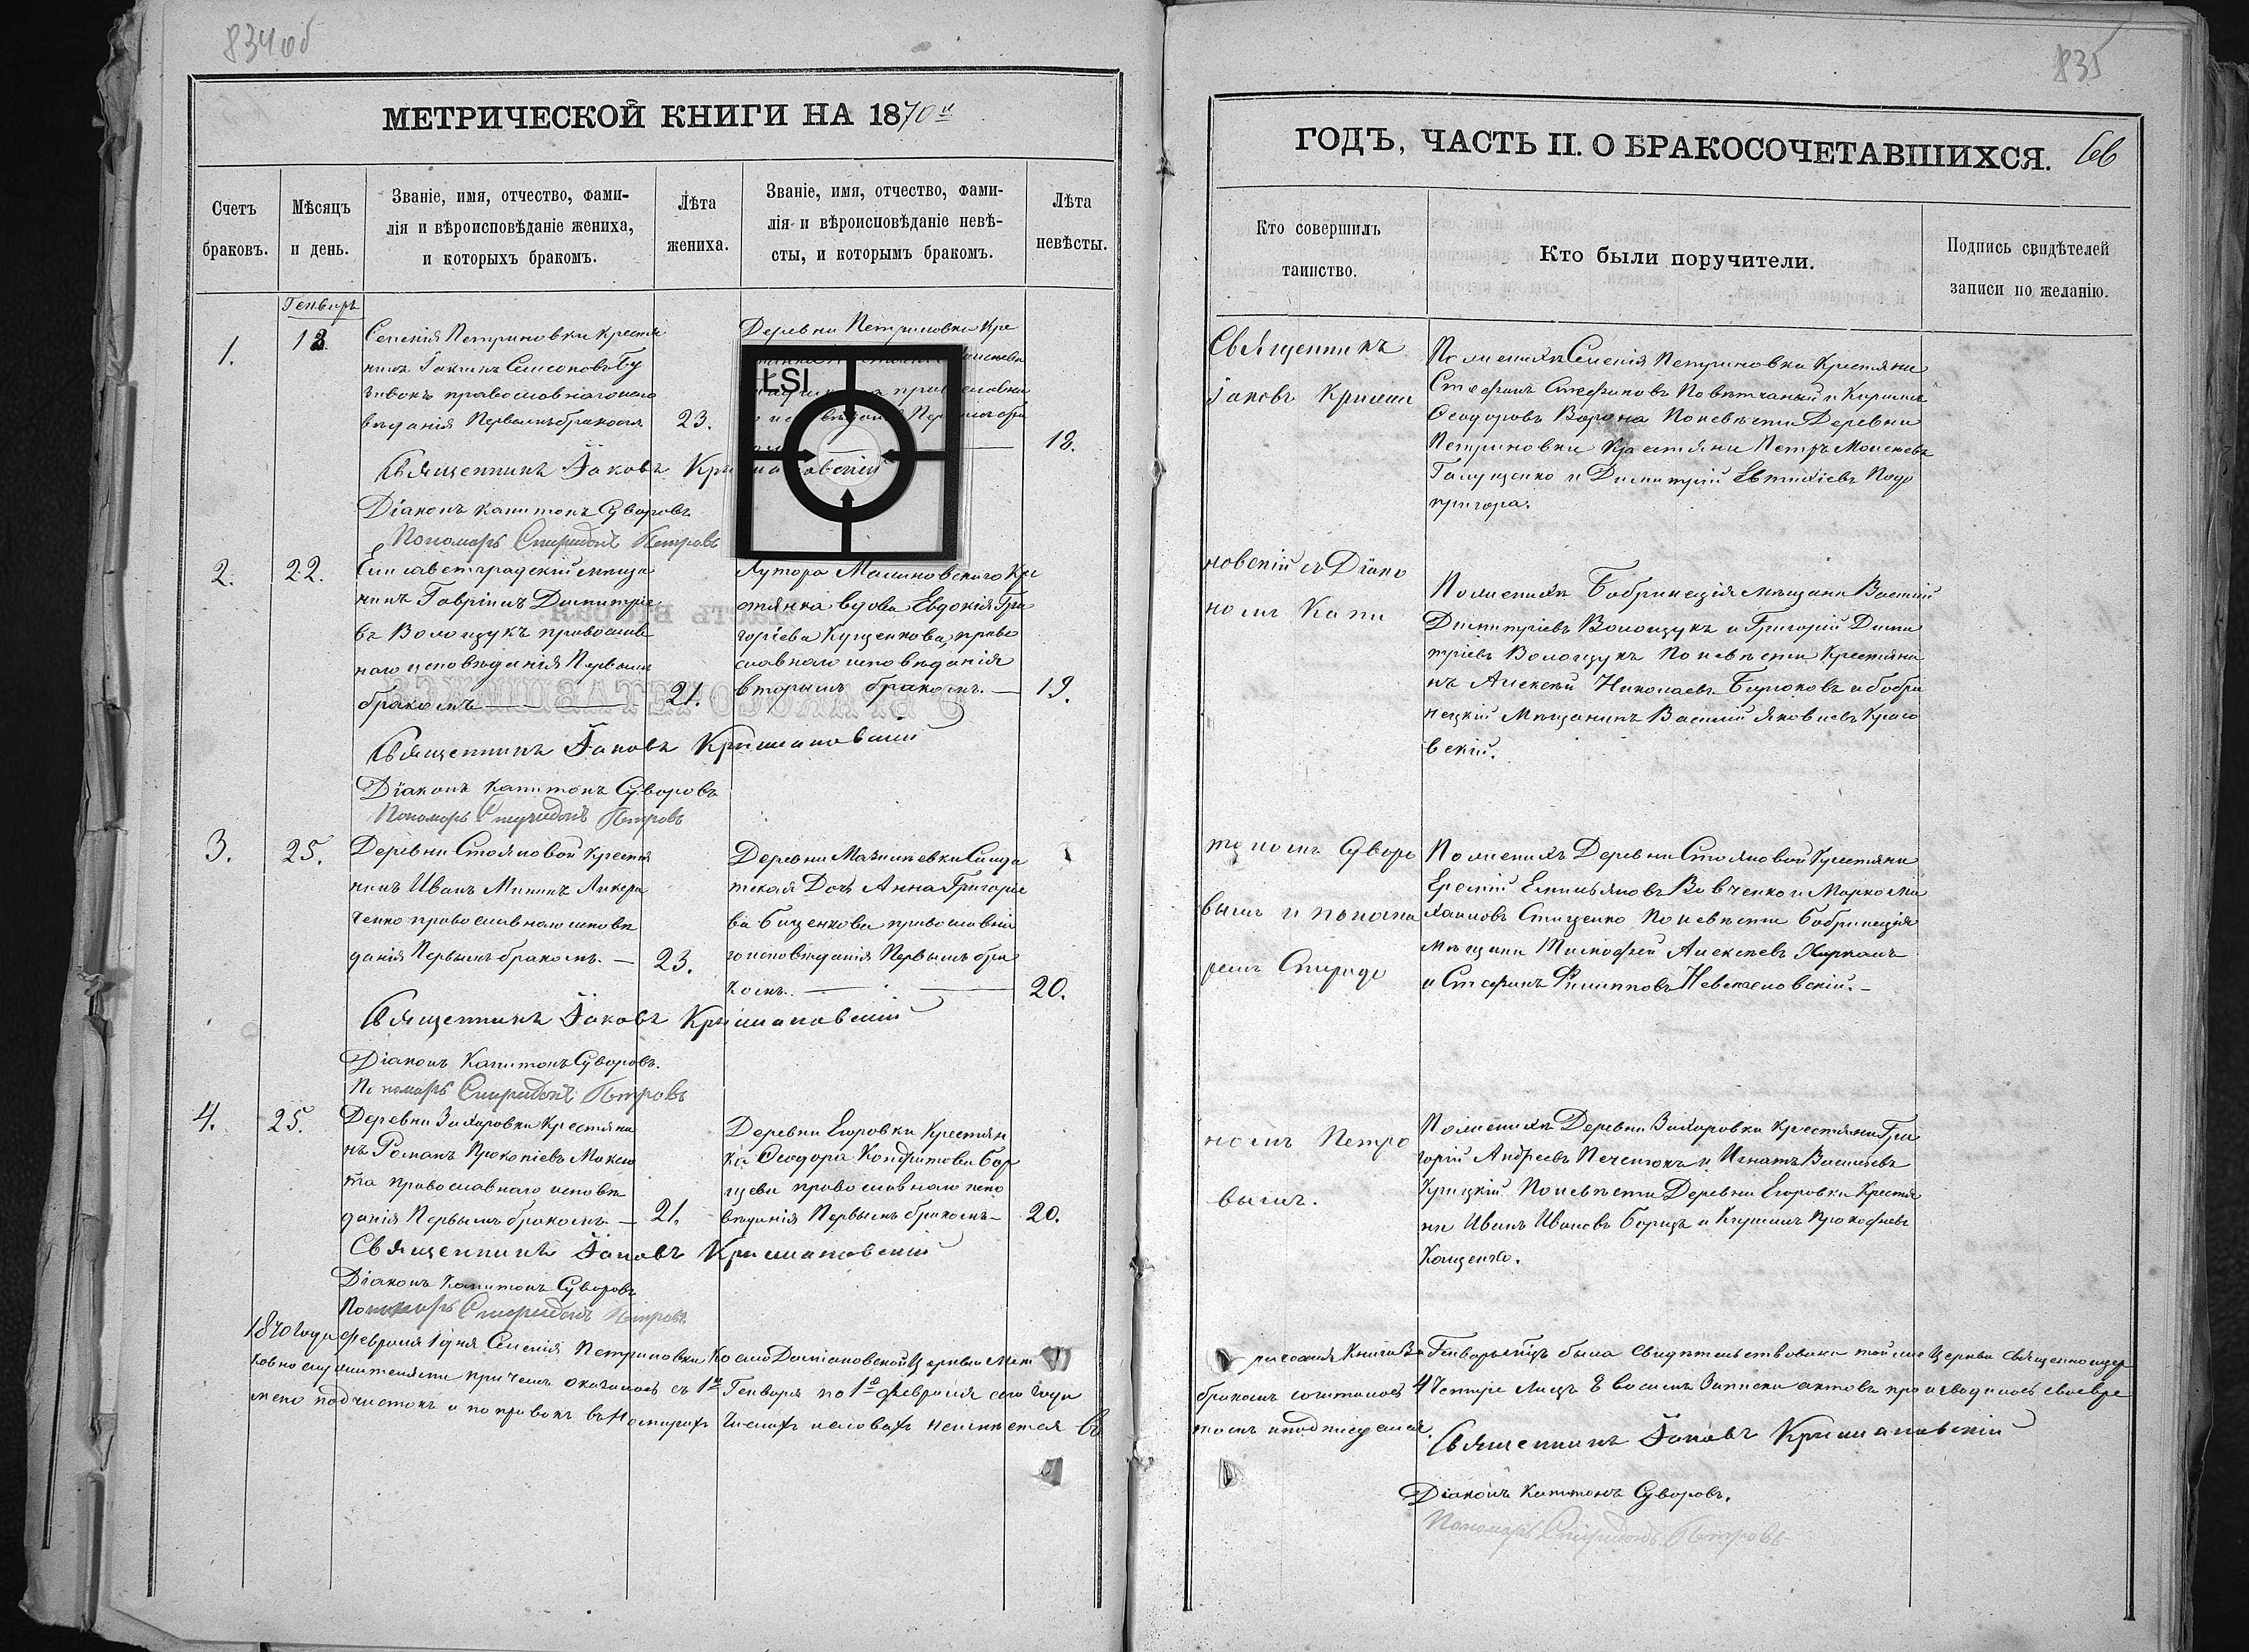 834об
МЕТРИЧЕСКОЙ КНИГИ НА 1870й
Счетъ браковъ.
Мѣсяцъ и день.
Званіе, имя, отчество, фами-
лія и вѣроисповѣданіе жениха,
и которыхъ бракомъ.
Лѣта
жениха.
Званіе, имя, отчество, фами-
лія и вѣроисповѣданіе невѣ-
сты, и которымъ бракомъ.
Лѣта
невѣсты.
Генварь
1.
Селенія Петриновки крестья
нинъ Іоаннъ Симоновъ
православнаго испо
вѣданія Первымъ бракомъ
23.
Деревни Петриновки Кре
LSI
18.
Священникъ Іаковъ Кри
Діаконъ Капитонъ Суворовъ
Пономарь Спиридонъ Петровъ
2.
22.
Елисаветградскій мѣща
нинъ Гавріилъ Димитріе
въ Волощукъ православ
наго исповѣданія Первымъ
бракомъ
21.
Хутора Малиновскаго Кре
стянка вдова Евдокія Гри
горіева Кущенкова, право
славнаго исповѣданія
вторымъ бракомъ.
19.
Священникъ Іаковъ Кришановскій
Діаконъ Капитонъ Суворовъ
Пономарь Спиридонъ Петровъ
3.
25.
Деревни Стояновой Крестя
нинъ Иванъ Мининъ
ченко православнаго исповѣ
данія Первымъ бракомъ.
23.
Деревни Солда
тская Дочь Анна Григорье
ва православна
го исповѣданія Первымъ бра
комъ.
20.
Священникъ Іаковъ Кришановскій
Діаконъ Капитонъ Суворовъ.
Пономарь Спиридонъ Петровъ
4.
25.
Деревни Захаровки Крестяни
нъ Романъ Прокопіевъ
православнаго исповѣ
данія Первымъ бракомъ
21.
Деревни Егоровки Крестян
ка Ѳеодора Кондратова Бор
щева православнаго испо
вѣданія Первымъ бракомъ
20.
Священникъ Іаковъ Кришановскій
Діаконъ Капитонъ Суворовъ
Пономарь Спиридонъ Петровъ
1870 года февраля 1 дня Селенія Петриновки Космо Даміановской Церкви Мет
ковно служителями причемъ оказалось съ 1го Генваря по 1е февраля сего года
мено подчистокъ и поправокъ въ Номерахъ Числахъ и словахъ неимѣется Въ
835
ГОДЪ, ЧАСТЬ II. О БРАКОСОЧЕТАВШИХСЯ.
Кто совершилъ
таинство.
Кто были поручители.
Подпись свидѣтелей
записи по желанію.
Священникъ
Іаковъ Криша
новскій съ Діако
номъ Капи
тономъ Суворо
вымъ и понома
ремъ Спиридо
номъ Петро
вымъ.
По женихѣ Селенія Петриновки Крестяни
Стефанъ Стефановъ и Кириллъ
Ѳеодоровъ Ворона По невѣсти Деревни
Петриновки Крестяни Петръ Моисеевъ
Галущенко и Димитрій Евтихіевъ Подо
пригора.
По женихѣ Бобринецкія мѣщани Василій
Димитріевъ Волощукъ и Григорій Дими
тріевъ Волощукъ По невѣсти Крестяни
нъ Алексѣй Николаевъ Бирюковъ и бобри
нецкій Мѣщанинъ Василій Яковлевъ Красо
вскій.
По женихѣ Деревни Стояновой Крестяни
Еремій Емильяновъ Вовченко и Марко Ми
хаиловъ По невѣсти Бобринецкія
Мѣщани Тимофей Алексѣевъ
и Стефанъ Филипповъ
По женихѣ Деревни Захаровки Крестяни Гри
горій Андреевъ и Игнатъ Васильевъ
По невѣсти Деревни Егоровки Крестя
ни Иванъ Ивановъ Борщъ и Кириллъ Прокофьевъ
Кащенко.
рическая Книга За Генварь мѣсяцъ была свидѣтельствована той же Церкви священно цер
бракомъ сочиталось 4 Четыре Лицъ 8 восемъ Записка актовъ производилась своевре
томъ и подписуемся.
Священникъ Іаковъ Кришановскій
Діаконъ Капитонъ Суворовъ.
Пономарь Спиридонъ Петровъ